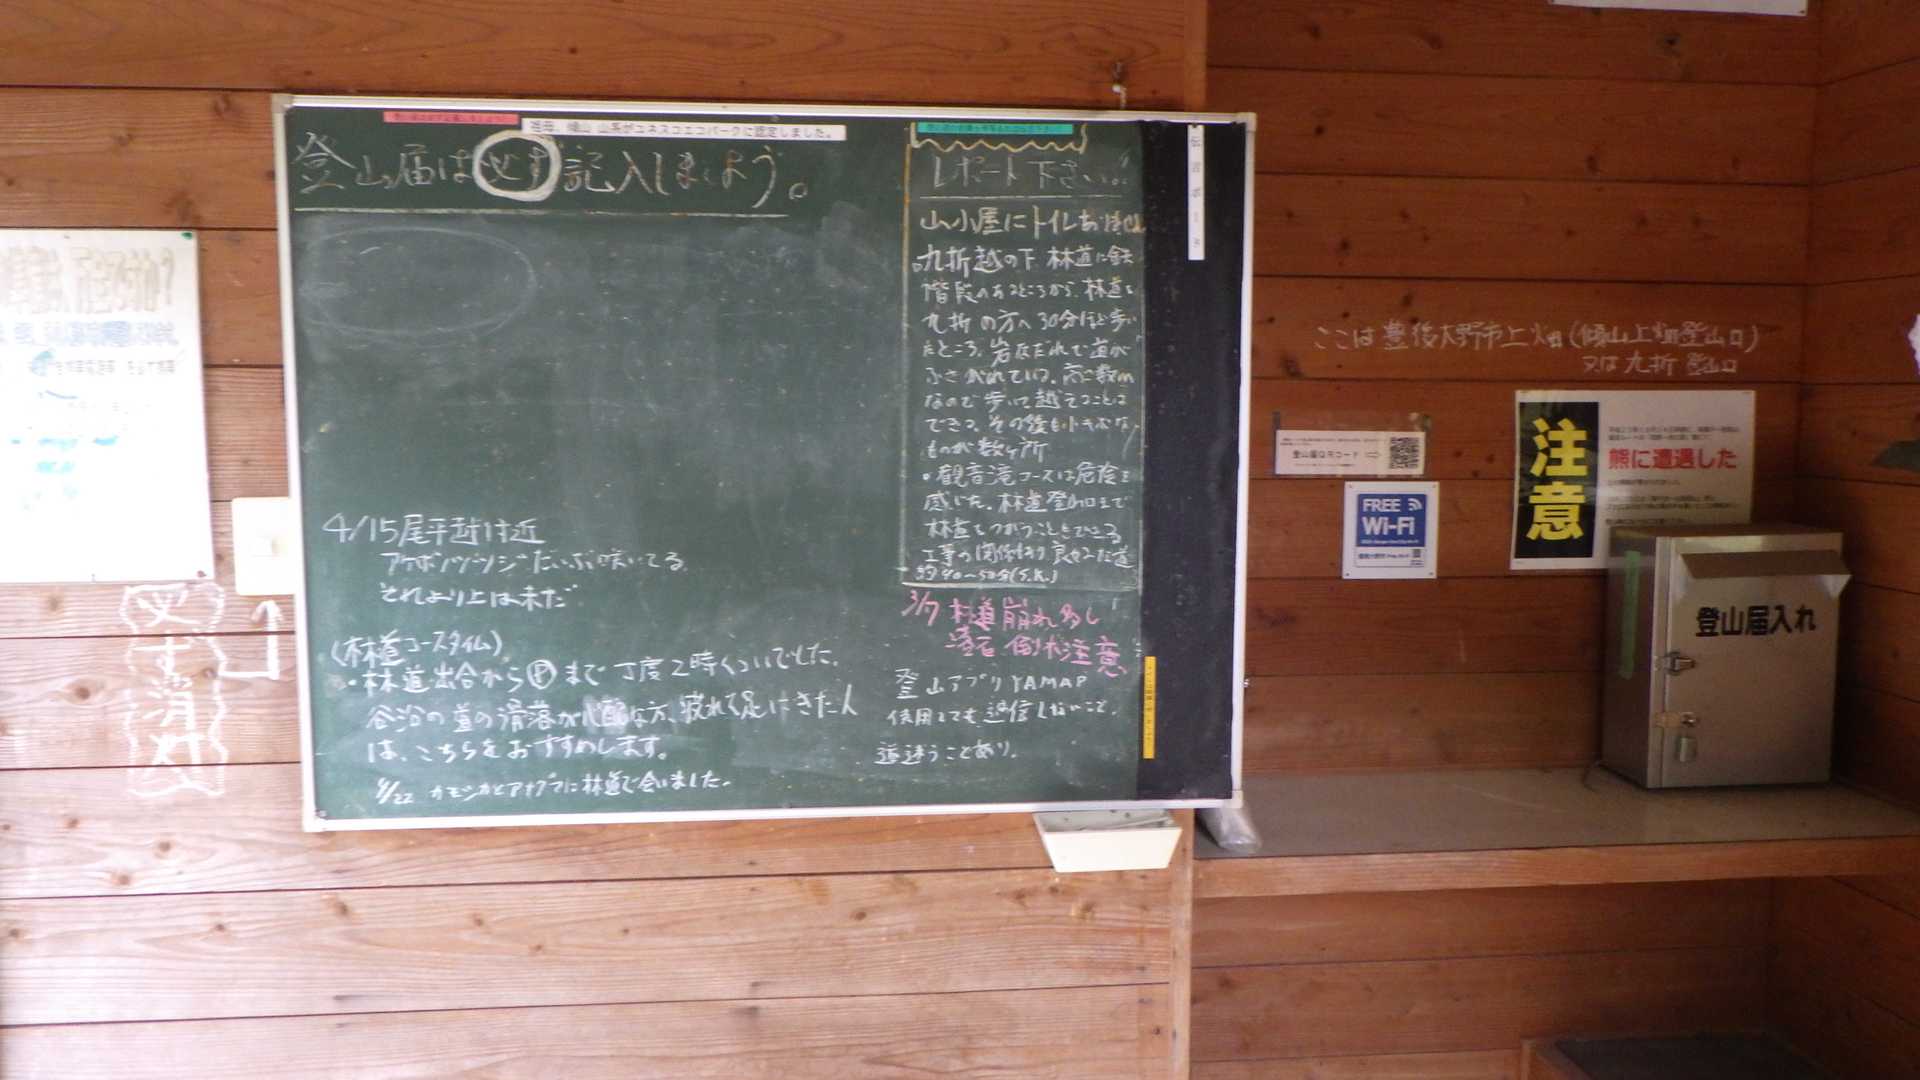 祖母、傾山 山系がユネスコエコパークに認定しました。
登山届は必ず記入しましょう。
4/15尾平越付近
アケボノツツジだいぶ咲いてる
それより上は未だ
(林道コースタイム)
・林道出合からⓅまで丁度2時くらいでした。
谷沿の道の滑落が心配な方、疲れて足にきた人
は、こちらをおすすめします。
4/22 カモシカとアナグマに林道で会いました。
レポート下さい。
山小屋にトイレあ
九折越の下 林道に鉄
階段のあるところから、林道を
九折の方へ30分ほど歩い
たところ、岩なだれで道が
ふさがれている。高さ数m
なので歩いて越えることは
できる。その後も
ものが数ヶ所
・観音滝コースは危険を
感じた。林道登山口まで
林道をつかうこともできる
工事の関係もあり良好な道
約40～50分(S.K.)
3/7 林道崩れ多し
落石 倒木注意
登山アプリYAMAP
使用しても過信しないこと。
道迷うことあり。
伝言ボード
必ず消灯
ここは豊後大野市上畑(傾山上畑登山口)
又は九折登山口
登山届QRコード
FREE
Wi-Fi
注意
熊に遭遇した
登山届入れ